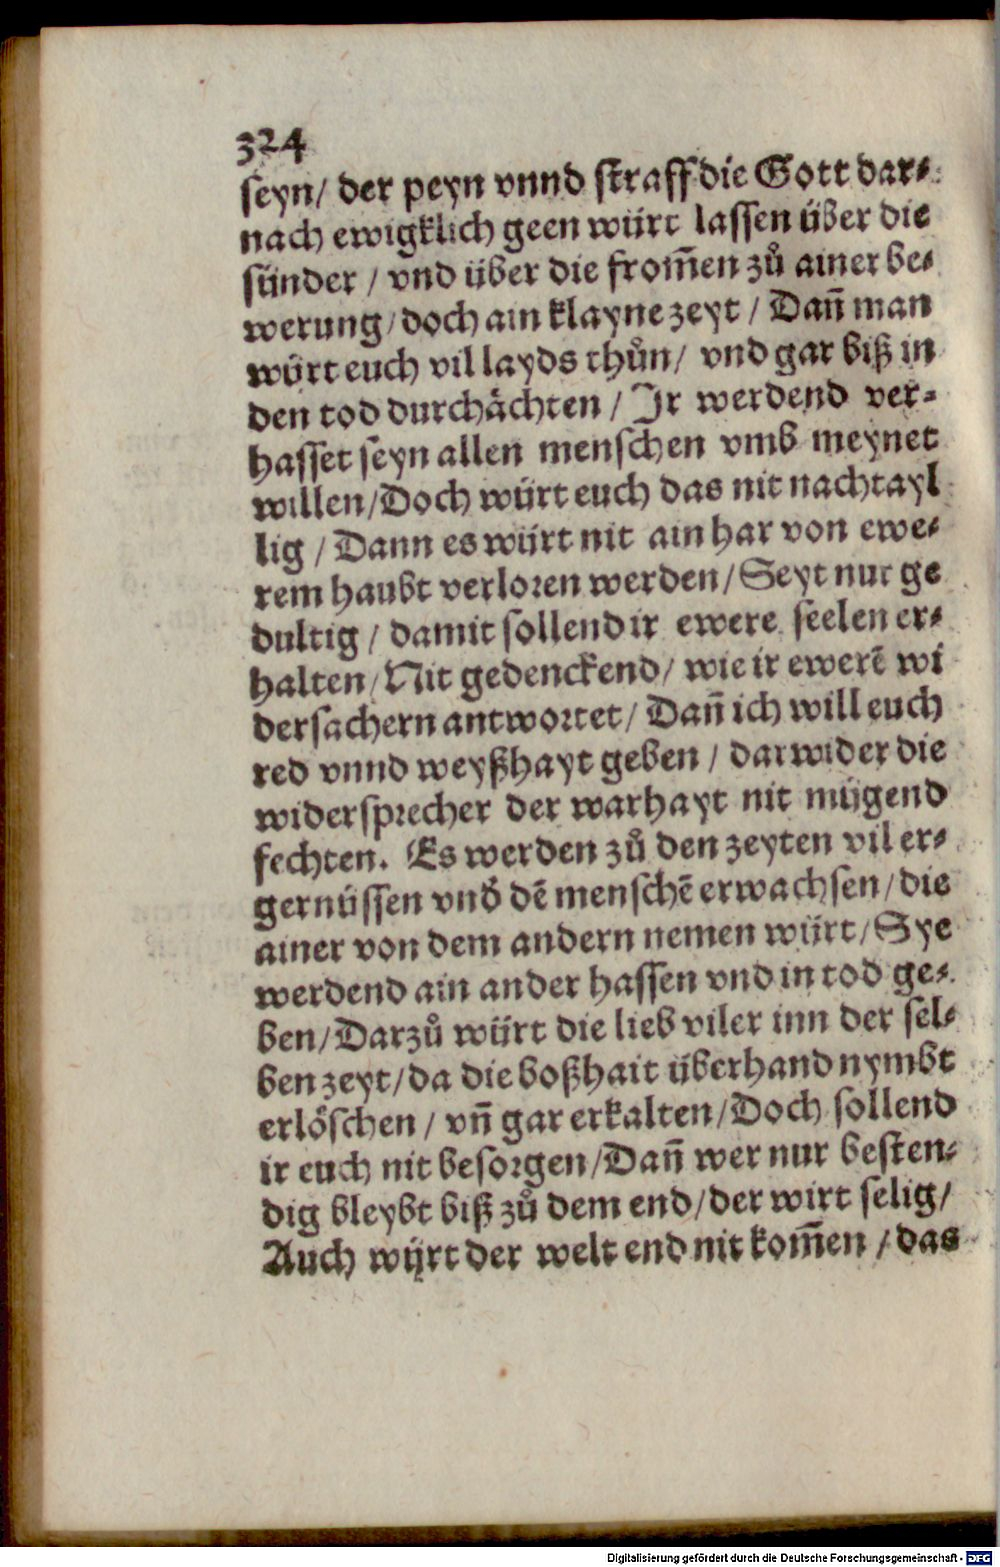 324
seyn/ der peyn vnnd straff die Gott dar⸗
nach ewigklich geen würt lassen über die
sünder / vnd über die from̄en zů ainer be⸗
werung/ doch ain klayne zeyt / Dañ man
würt euch vil layds thůn/ vnd gar biß in
den tod durchächten / Ir werdend ver⸗
hasset seyn allen menschen vmb meynet
willen/Doch würt euch das nit nachtayl
lig / Dann es würt nit ain har von ewe⸗
rem haubt verloren werden/Seyt nur ge
dultig / damit sollend ir ewere seelen er⸗
halten/Nit gedenckend/ wie ir ewerē wi
dersachern antwortet/ Dañ ich will euch
red vnnd weyßhayt geben / darwider die
widersprecher der warhayt nit mügend
fechten. Es werden zů den zeyten vil er⸗
gernüssen vnd̕ dē menschē erwachsen/die
ainer von dem andern nemen würt/Sye
werdend ain ander hassen vnd in tod ge⸗
ben/Darzů würt die lieb viler inn der sel⸗
ben zeyt/da die boßhait überhand nymbt
erlöschen / vñ gar erkalten/Doch sollend
ir euch nit besorgen/Dañ wer nur besten⸗
dig bleybt biß zů dem end/der wirt selig/
Auch würt der welt end nit kom̄en / das
Digitalisierung gefördert durch die Deutsche Forschungsgemeinschaft - DFG